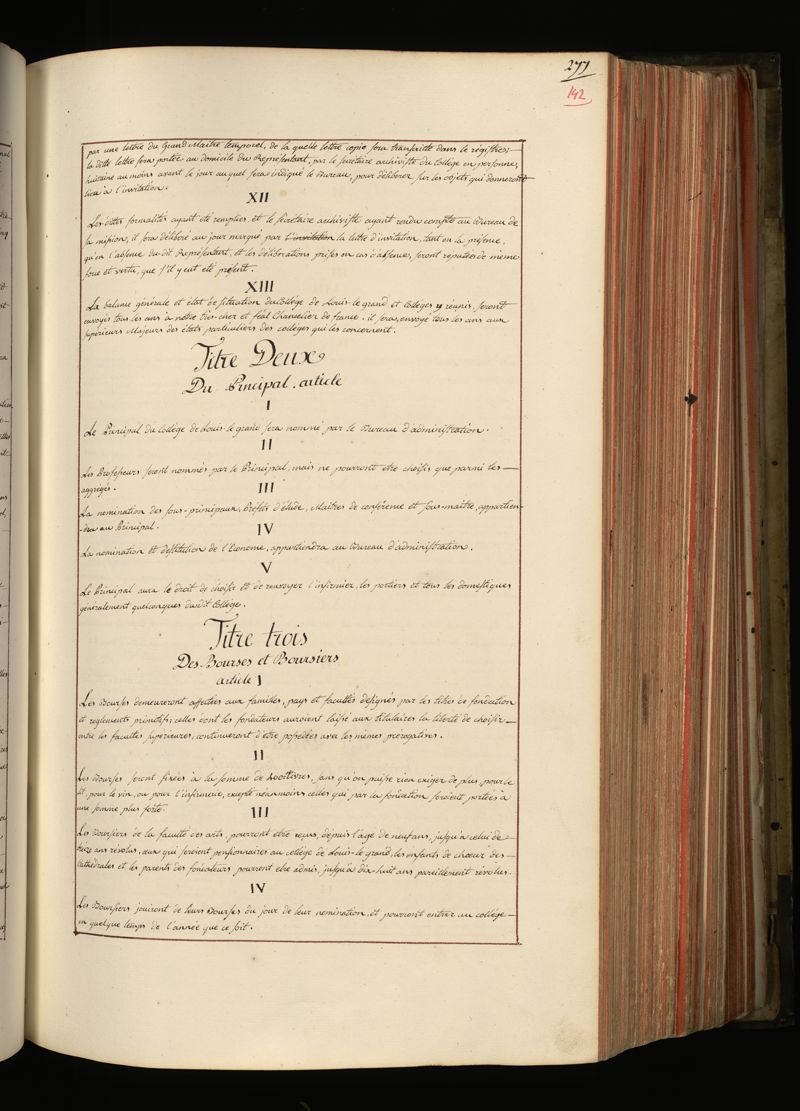 277
142
par une lettre du Grand Maitre temporel, de la quelle lettre copie sera transcritte dans le régistres;
la ditte lettre sera portée au domicile du Représentant, par le secrétaire archiviste du College en personne,
huitaine au moins avant le jour auquel sera indiqué le Bureau, pour déliberer sur les objets qui donneront
lieu à l'invitation.
XII
Les dittes formalités ayant été remplies, et le secrétaire archiviste ayant rendu compte au Bureau de
sa mission, il sera déliberé au jour marqué par l'invitation la lettre d'invitation, tant en la présence,
qu'en l'absence du dit Représentant, et les déliberations prises en cas d'absence, seront réputées de meme
force et vertu, que s'il y eut été présent.
XIII
La balance générale et état de situation du College de Louis-le-grand et Colleges y réunis, seront
envoyés tous les ans à notre très-cher et féal Chancelier de france. il sera envoyé tous les ans aux
supérieurs Majeurs des états particuliers des colleges qui les concernent.
Titre Deux
Du Principal. article
I
Le Principal du College de Louis-le-grand sera nommé par le Bureau d'administration.
II
Les Professeurs seront nommés par le Principal, mais ne pourront etre choisis que parmi les
aggrégés.
III
La nomination des sous-principaux, Préfets d'étude, Maitres de conférence et sous-maitre, appartien-
-dra au Principal.
IV
La nomination et destitution de l'Econome, appartiendra au Bureau d'administration.
V
Le Principal aura le droit de choisir et de renvoyer l'infirmier, les portiers et tous les domestiques
généralement quelconques du dit College.
Titre trois
Des Bourses et Boursiers
article I
Les Bourses demeureront affectées aux familles, pays et facultés désignés par les titres de fondation
et reglements primitifs; celles dont les fondateurs auroient laissé aux titulaires la liberté de choisir
entre les facultés supérieures, continueront d'être possédées avec les mêmes prérogatives.
II
Les Bourses seront fixées à la somme de 400 livres, sans qu'on puisse rien exiger de plus, pour le
lit, pour le vin, ou pour l'infirmerie, excepté néanmoins celles qui par la fondation seroient portées à
une somme plus forte.
III
Les Boursiers de la faculté des arts, pourront etre reçus, depuis l'âge de neuf ans, jusqu'à celui de
treize ans révolus, ceux qui seroient pensionnaires au college de Louis-le grand, les enfants de chœur des
Cathédrales et les parents des fondateurs pourront etre admis, jusqu'à dix-huit ans pareillement révolus.
IV
Les Boursiers jouiront de leurs Bourses du jour de leur nomination, et pourront entrer au college
en quelque temps de l'année que ce soit.